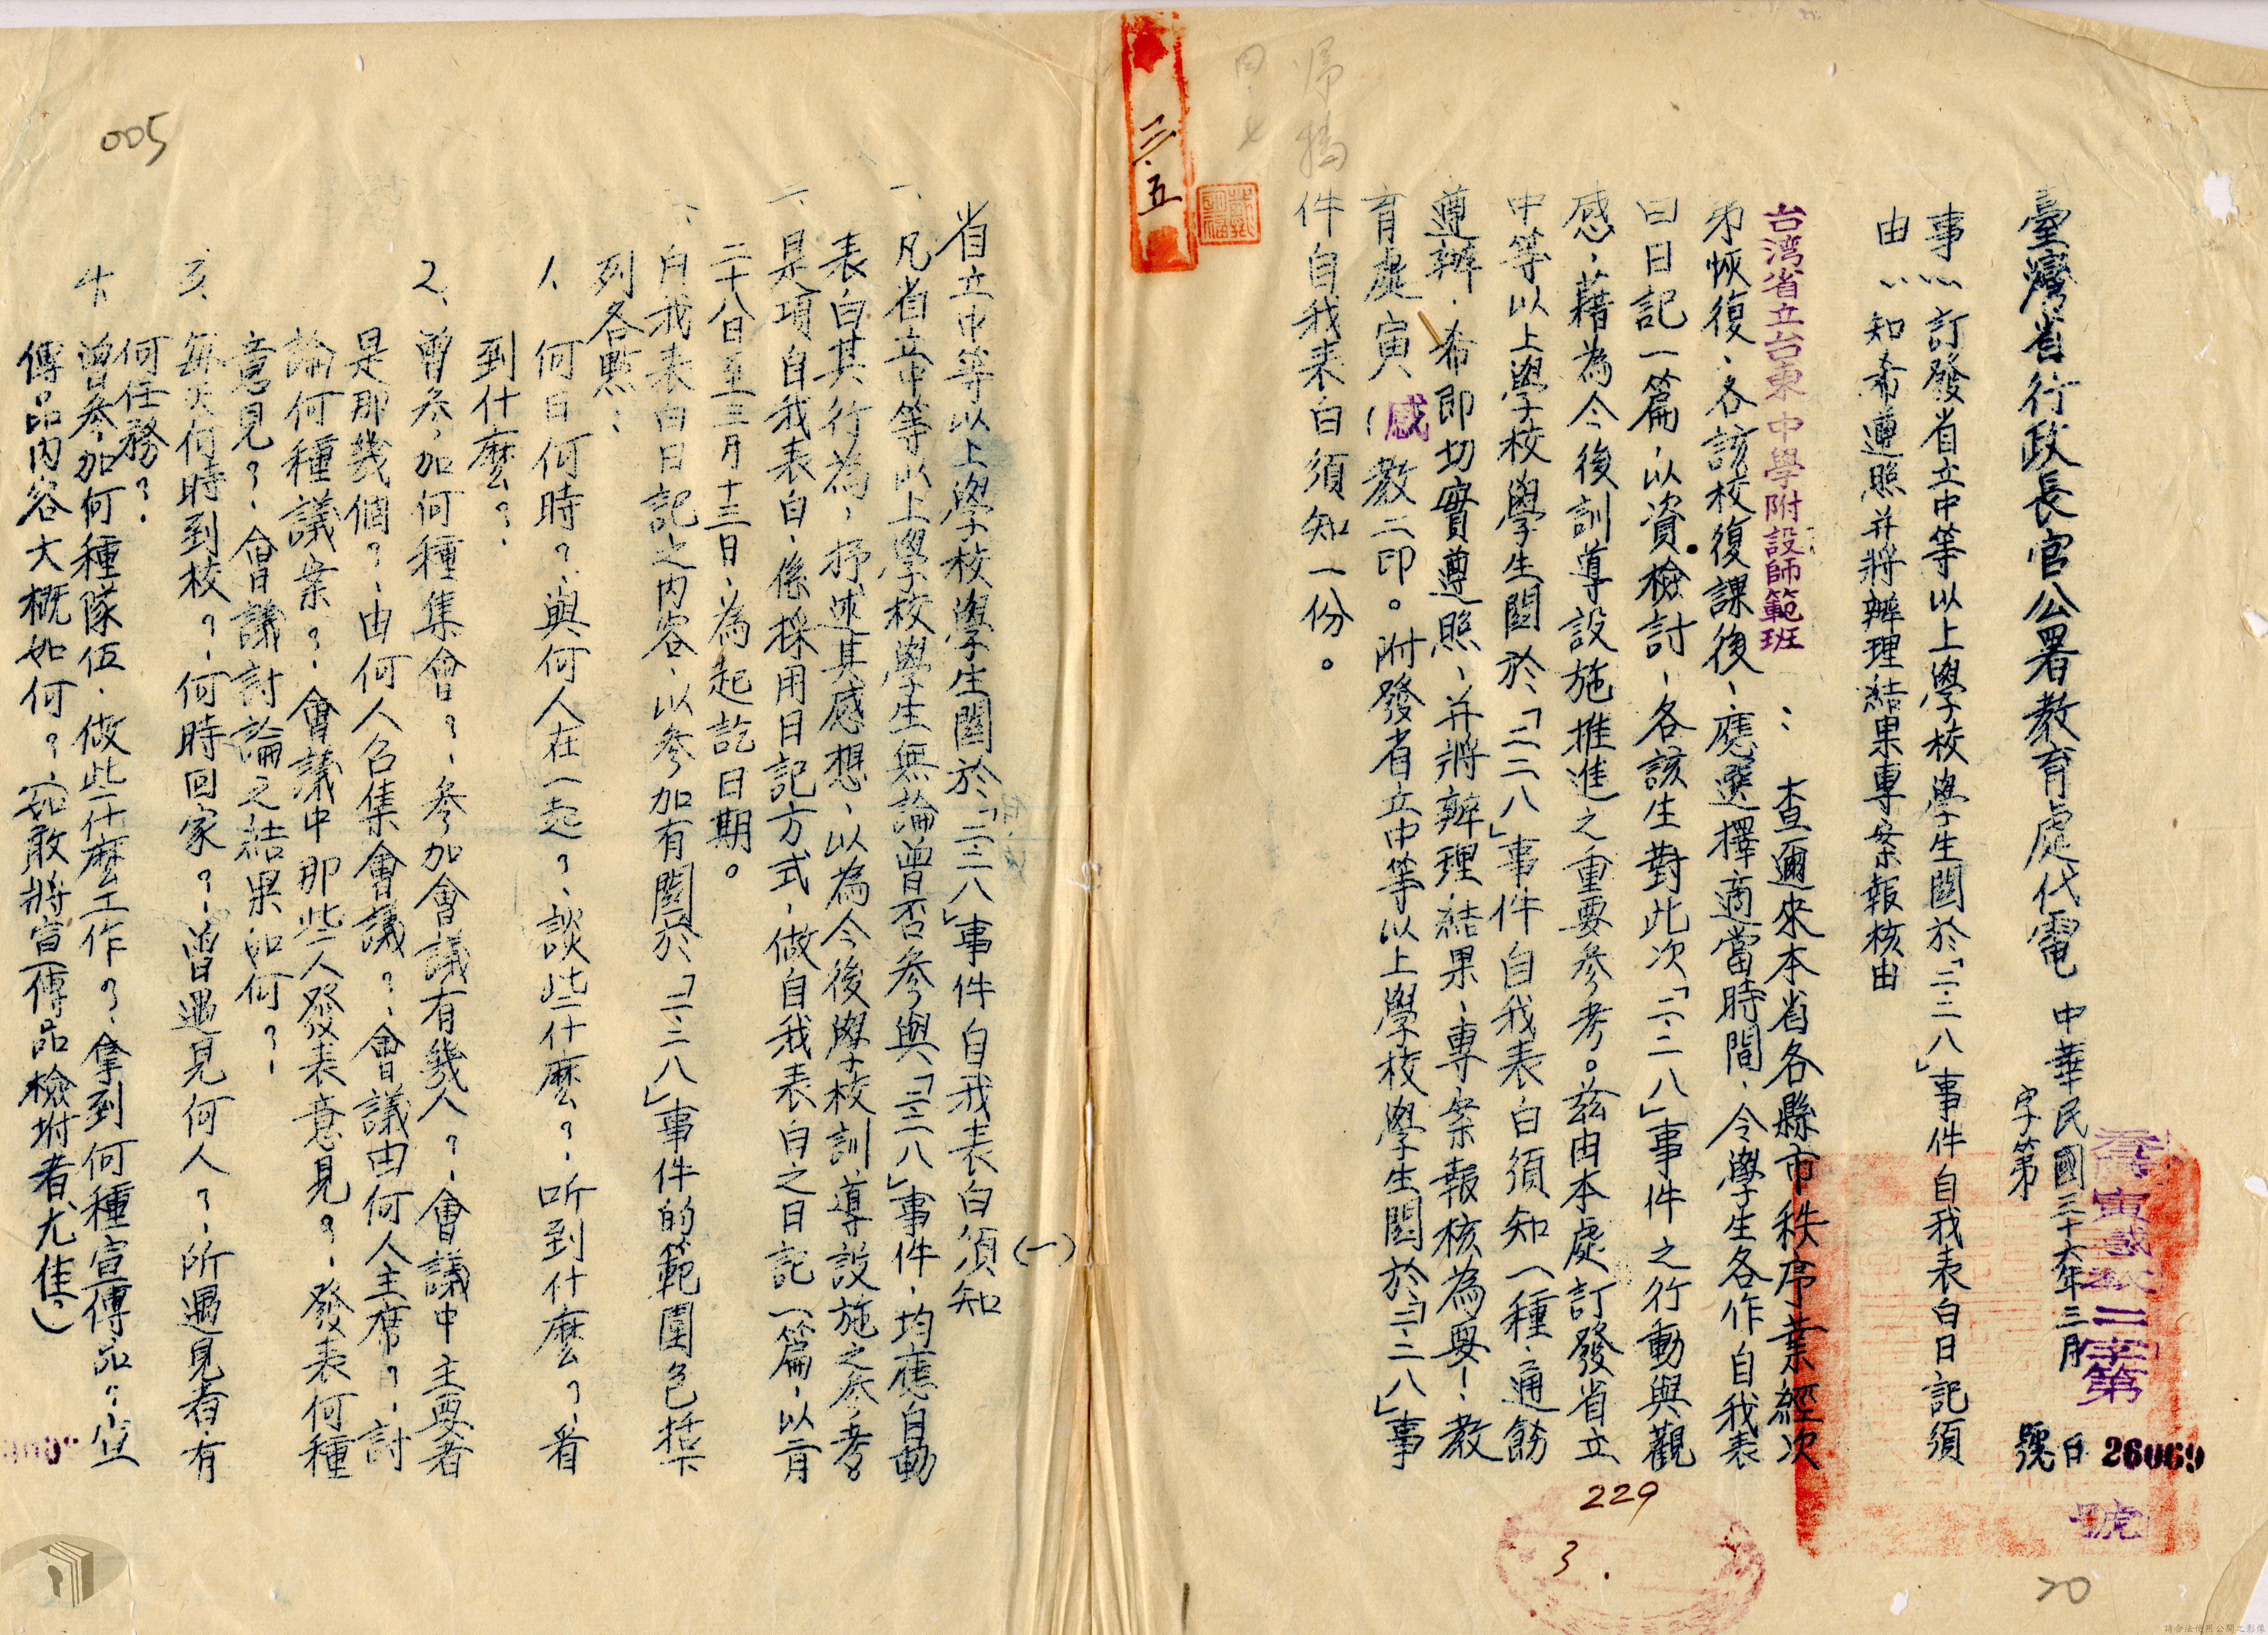 臺灣省行政長官公署教育處代電
中華民國三十六年三月 日
字第 號
寅感教二字第
26069
號
事：訂發省立中等以上學校學生關於「二二八」事件自我表白日記須
由：知希遵照并將辦理結果專案報核由
台湾省立台東中學附設師範班
：查邇來本省各縣市秩序業經次
第恢復、各該校復課後、應選擇適當時間、令學生各作自我表
白日記一篇、以資檢討、各該生對此次「二二八」事件之行動與觀
感、藉為今後訓導設施推進之重要參考。茲由本處訂發省立
中等以上學校學生關於「二二八」事件自我表白須知一種、通飭
遵辦、希即切實遵照、并將辦理結果、專案報核為要！、教
育處寅(感)教二印。附發省立中等以上學校學生關於「二二八」事
件自我表白須知一份。
229
3.
20
歸檔
三.五
(一)
省立中等以上學校學生關於「二二八」事件自我表白須知
一、凡省立中等以上學校學生無論曾否參與「二二八」事件、均應自動
表白其行為，抒述其感想、以為今後學校訓導設施之參考。
二、是項自我表白、係採用日記方式、做自我表白之日記一篇、以二月
二十八日至三月十三日、為起訖日期。
自我表白日記之內容、以參加有關於「二二八」事件的範圍包括下
列各點：
1、何日何時？、與何人在一起？、談些什麼？、听到什麼？、看
到什麼？
2、曾參加何種集會？、參加會議有幾人？、會議中主要者
是那幾個？、由何人召集會議？、會議由何人主席？、討
論何種議案？、會議中那些人發表意見？、發表何種
意見？、會議討論之結果如何？、
3、每天何時到校？、何時回家？、曾遇見何人？、所遇見者有
何任務？
4、曾參加何種隊伍、做些什麼工作？、拿到何種宣傳品？、宣
傳品內容大概如何？、(如敢將宣傳品檢坿者尤佳)
005
請合法使用公開之影像